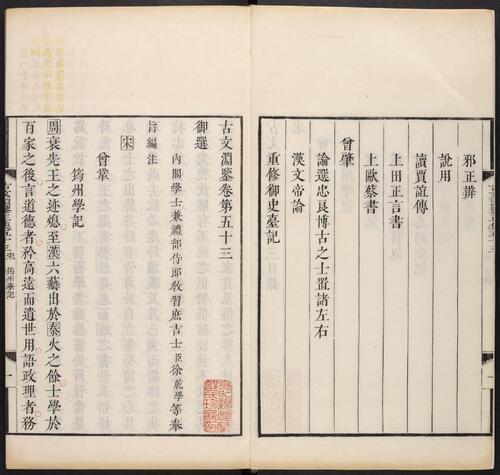 邪正辨
說用
讀賈誼傳
上田正言書
上歐蔡書
曾肇
論選忠良博古之士置諸左右
漢文帝論
重修御史臺記
古文淵鑒卷第五十三
御選
內閣學士兼禮部侍郎教習庶吉士臣徐乾學等奉
旨編注
宋
曾鞏
筠州學記
周衰先王之迹熄至漢六藝出於秦火之餘士學於
百家之後言道德者矜高遠而遺世用語政理者務
筠州學記
一